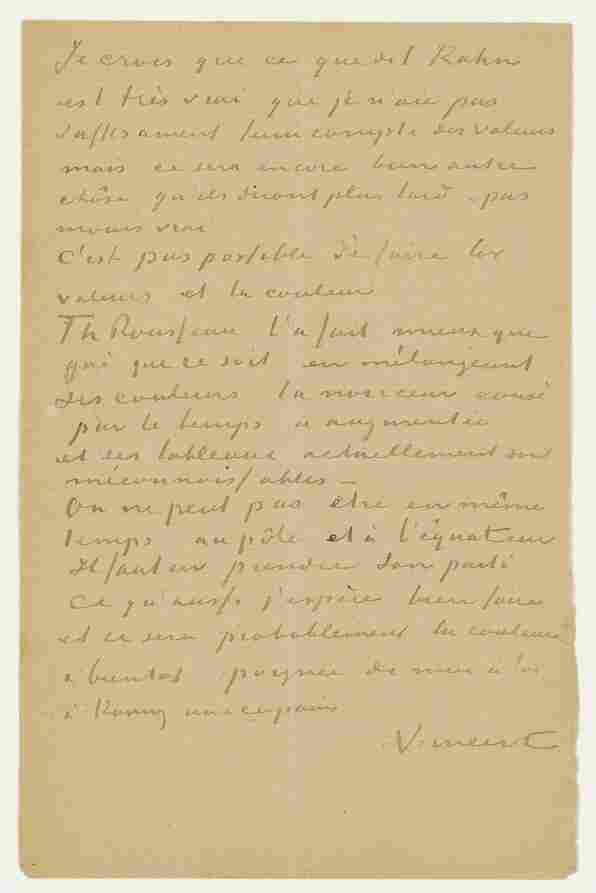 Je crois que ce que dit Kahn
est très vrai que je n'ai pas
suffisament tenu compte des valeurs
mais ce sera encore bien autre
chôse qu'ils diront plus tard - pas
moins vrai
C'est pas possible de faire les
valeurs et la couleur
Th Rousseau l'a fait mieux que
qui que ce soit en mélangeant
des couleurs la noirceur causé
par le temps a augmentée
et ses tableaux actuellement sont
méconnoissables –
On ne peut pas etre en même
temps au pôle et à l'équateur
Il faut en prendre son parti
Ce qu'aussi j'espère bien faire
et ce sera probablement la couleur
a bientot poignee de main a toi
à Koning aux copains
Vincent